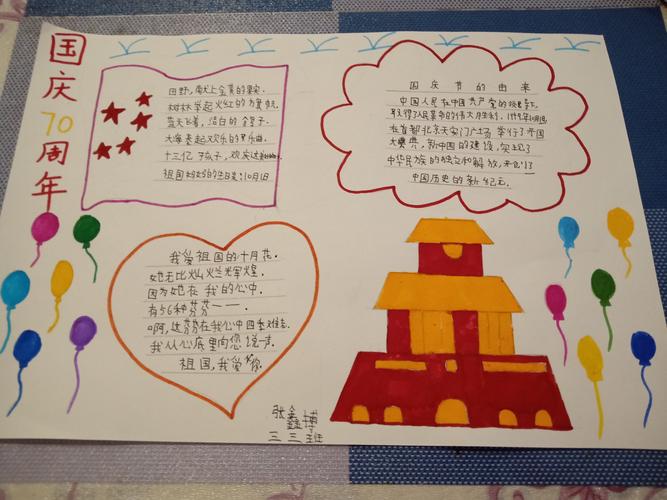 国庆70周年
田野，献上金黄的果实．
树林举起火红的
蓝天飞着，洁白的鸽子．
大海奏起欢乐的乐曲．
十三亿孩子，欢笑
祖国妈妈的生日是：10月1日
国庆节的由来
中国人民在中国共产党的
取得了人民革命的伟大胜利．1949年10月1日
在首都北京天安门广场举行了开国
大典，新中国的建设，实现了
中华民族的独立和解放，开创了
中国历史的新纪元．
我爱祖国的十月花．
她无比灿烂辉煌．
因为她在我的心中．
有56种芬芳一一．
啊，这芬芳在我心中四季难忘．
我从心底里向您说一声．
祖国，我爱你．
张鑫博
三三班